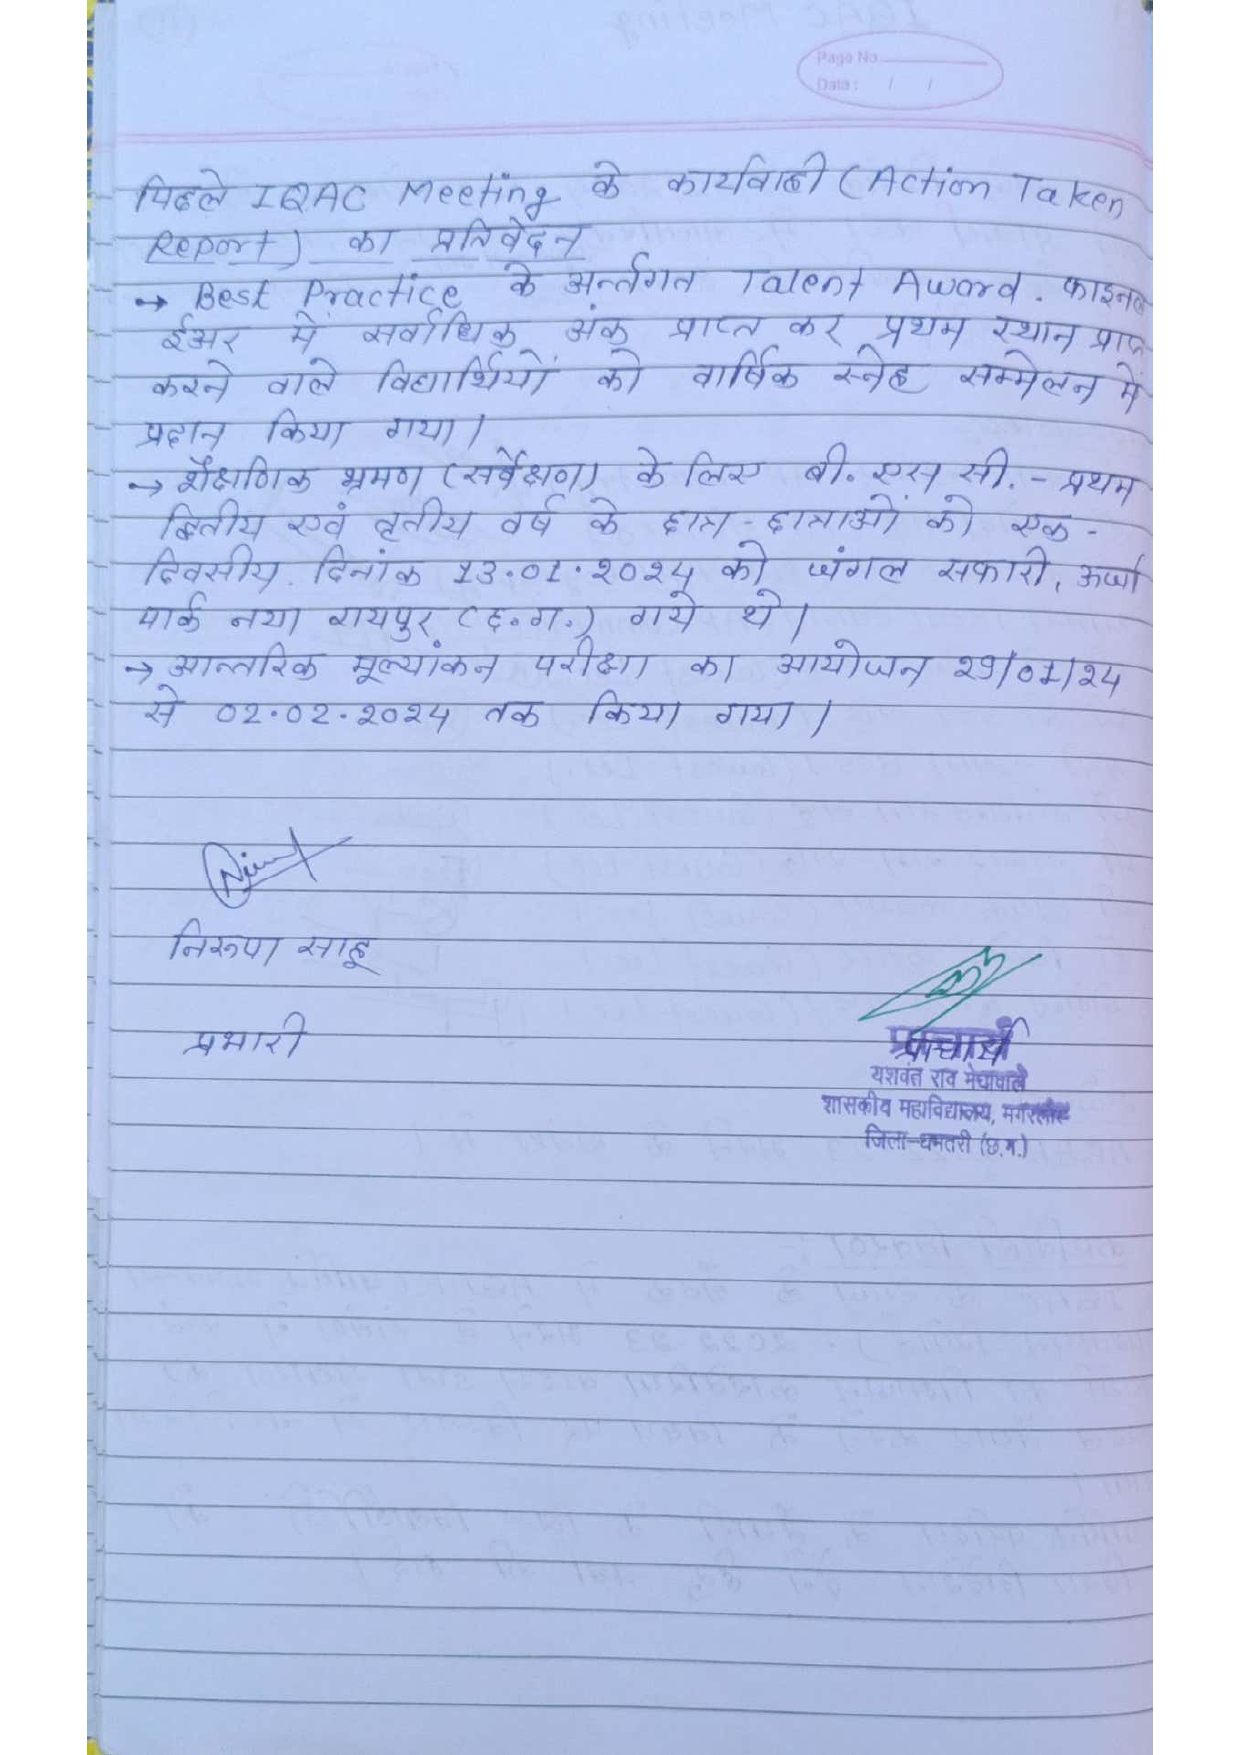 Page No.
Date : / /
पिछले IQAC Meeting के कार्यवाही (Action Taken
Report) का प्रतिवेदन
→ Best Practice के अर्न्तगत Talent Award. फाइनल
ईअर में सर्वाधिक अंक प्राप्त कर प्रथम स्थान प्राप्त
करने वाले विद्यार्थियों को वार्षिक स्नेह सम्मेलन में
प्रदान किया गया।
→ शैक्षणिक भ्रमण (सर्वेक्षण) के लिए बी.एस सी. - प्रथम
द्वितीय एवं तृतीय वर्ष के छात्र - छात्राओं को एक -
दिवसीय. दिनांक 13.01.2024 को जंगल सफारी, ऊर्जा
पार्क नया रायपुर (छ.ग.) गये थे।
→ आन्तरिक मूल्यांकन परीक्षा का आयोजन 29/01/24
से 02.02.2024 तक किया गया।
निरूपा साहू
प्रभारी
प्राचार्य
यशवंत राव मेघावाले
शासकीय महाविद्यालय, मगरलोड
जिला-धमतरी (छ.ग.)